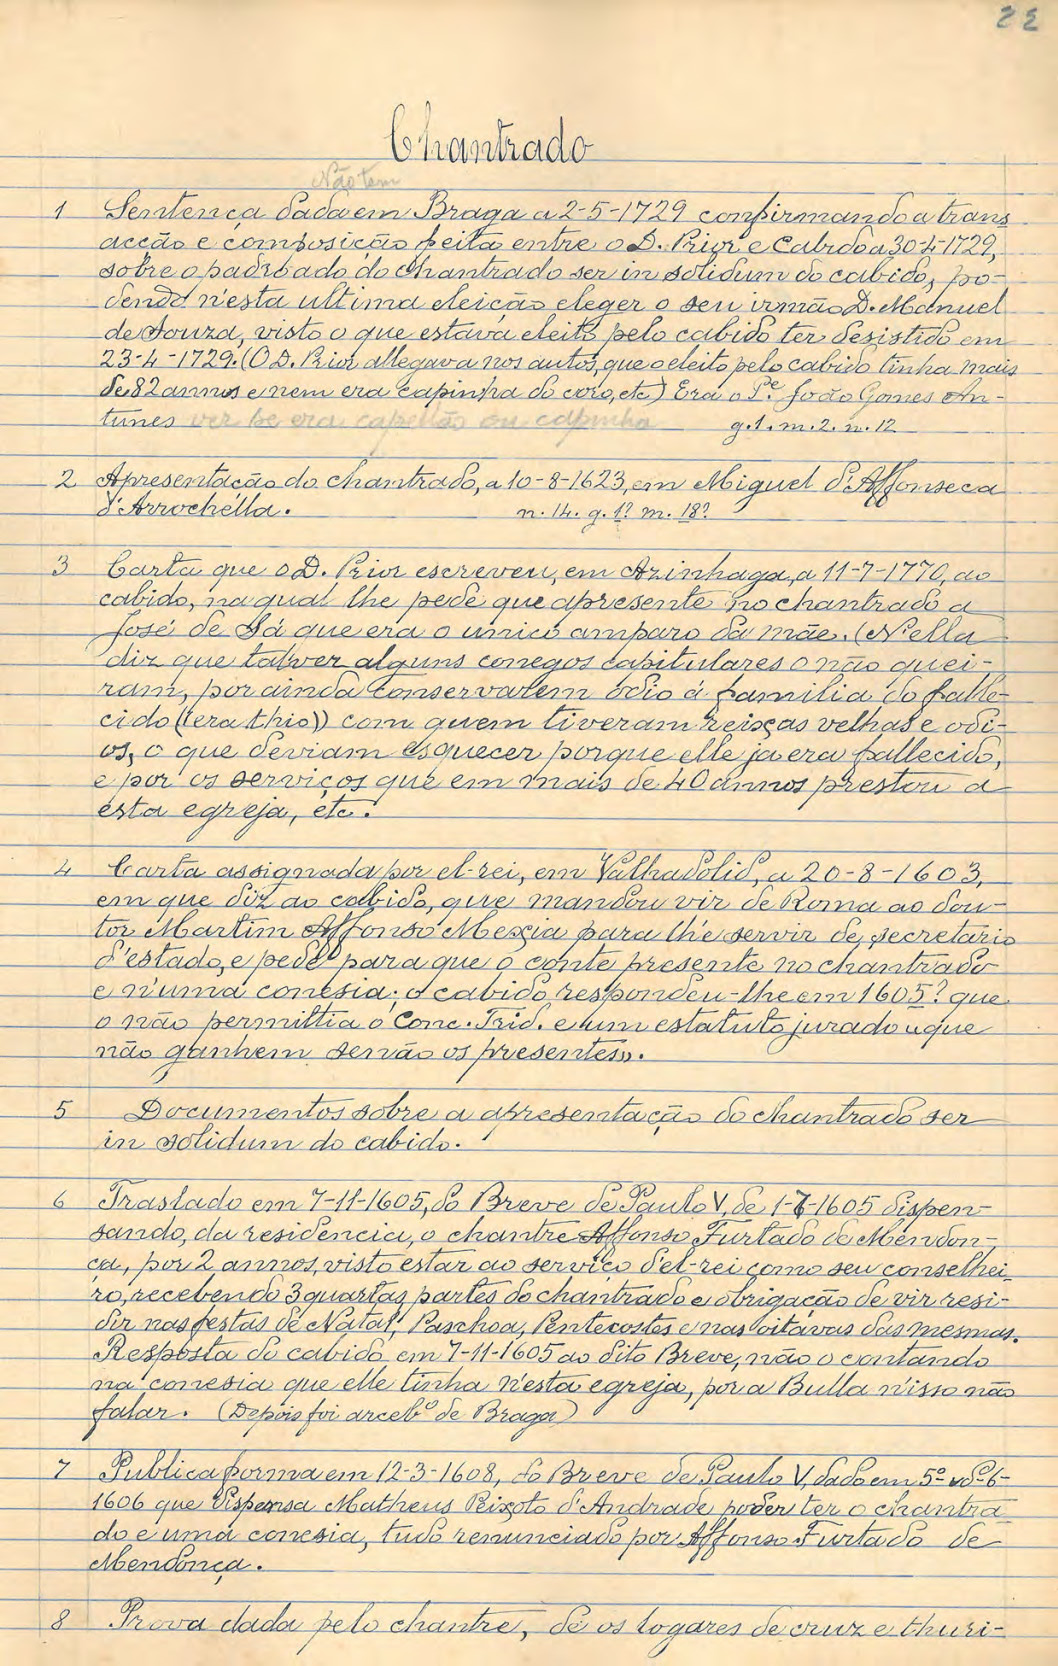 22
Chantrado
Não tem
1 Sentença dada em Braga a 2-5-1729 confirmando a trans
acção e composição feita entre o D. Prior e Cabido a 30-4-1729,
sobre o padroado do chantrado ser in solidum do cabido, po-
dendo n'esta ultima eleição eleger o seu irmão D. Manuel
de Souza, visto o que estava eleito pelo cabido ter desistido em
23-4-1729. (O D. Prior allegava nos autos, que o eleito pelo cabido tinha mais
de 82 annos e nem era capinha do coro, etc.) Era o Pe. João Gomes An-
tunes ver se era capellão ou capinha g. 1. m. 2. n. 12
2 Apresentação do chantrado, a 10-8-1623, em Miguel d'Affonseca
d'Arrochélla. n. 14. g. 1? m. 18?
3 Carta que o D. Prior escreveu, em Azinhaga, a 11-7-1770, ao
cabido, na qual lhe pede que apresente no chantrado a
José de Sá que era o unico amparo da mãe. (N'ella
diz que talvez alguns conegos capitulares o não quei-
ram, por ainda conservarem odio á familia do falle-
cido ((era thio)) com quem tiveram reixas velhas e odi-
os, o que deviam esquecer porque elle ja era fallecido,
e por os serviços que em mais de 40 annos prestou a
esta egreja, etc.
4 Carta assignada por el-rei, em Valhadolid, a 20-8-1603,
em que diz ao cabido, que mandou vir de Roma ao dou-
tor Martim Affonso Mexia para lhe servir de secretario
d'estado, e pede para que o conte presente no chantrado
e n'uma conesia; o cabido respondeu-lhe em 1605? que
o não permittia o Conc. Trid. e um estatuto jurado «que
não ganhem senão os presentes».
5 Documentos sobre a apresentação do chantrado ser
in solidum do cabido.
6 Traslado em 7-11-1605, do Breve de Paulo V, de 1-7-1605 dispen-
sando, da residencia, o chantre Affonso Furtado de Mendon-
ça, por 2 annos, visto estar ao serviço d'el-rei como seu conselhei-
ro, recebendo 3 quartas partes do chantrado e obrigação de vir resi-
dir nas festas de Natal, Paschoa, Pentecostes e nas oitavas das mesmas.
Resposta do cabido em 7-11-1605 ao dito Breve, não o contando
na conesia que elle tinha n'esta egreja, por a Bulla n'isso não
falar. (Depois foi arcebº de Braga)
7 Publica forma em 12-3-1608, do Breve de Paulo V, dado em
1606 que dispensa Matheus Peixoto d'Andrade poder ter o chantra-
do e uma conesia, tudo renunciado por Affonso Furtado de
Mendonça.
8 Prova dada pelo chantre, de os logares de cruz e thuri-